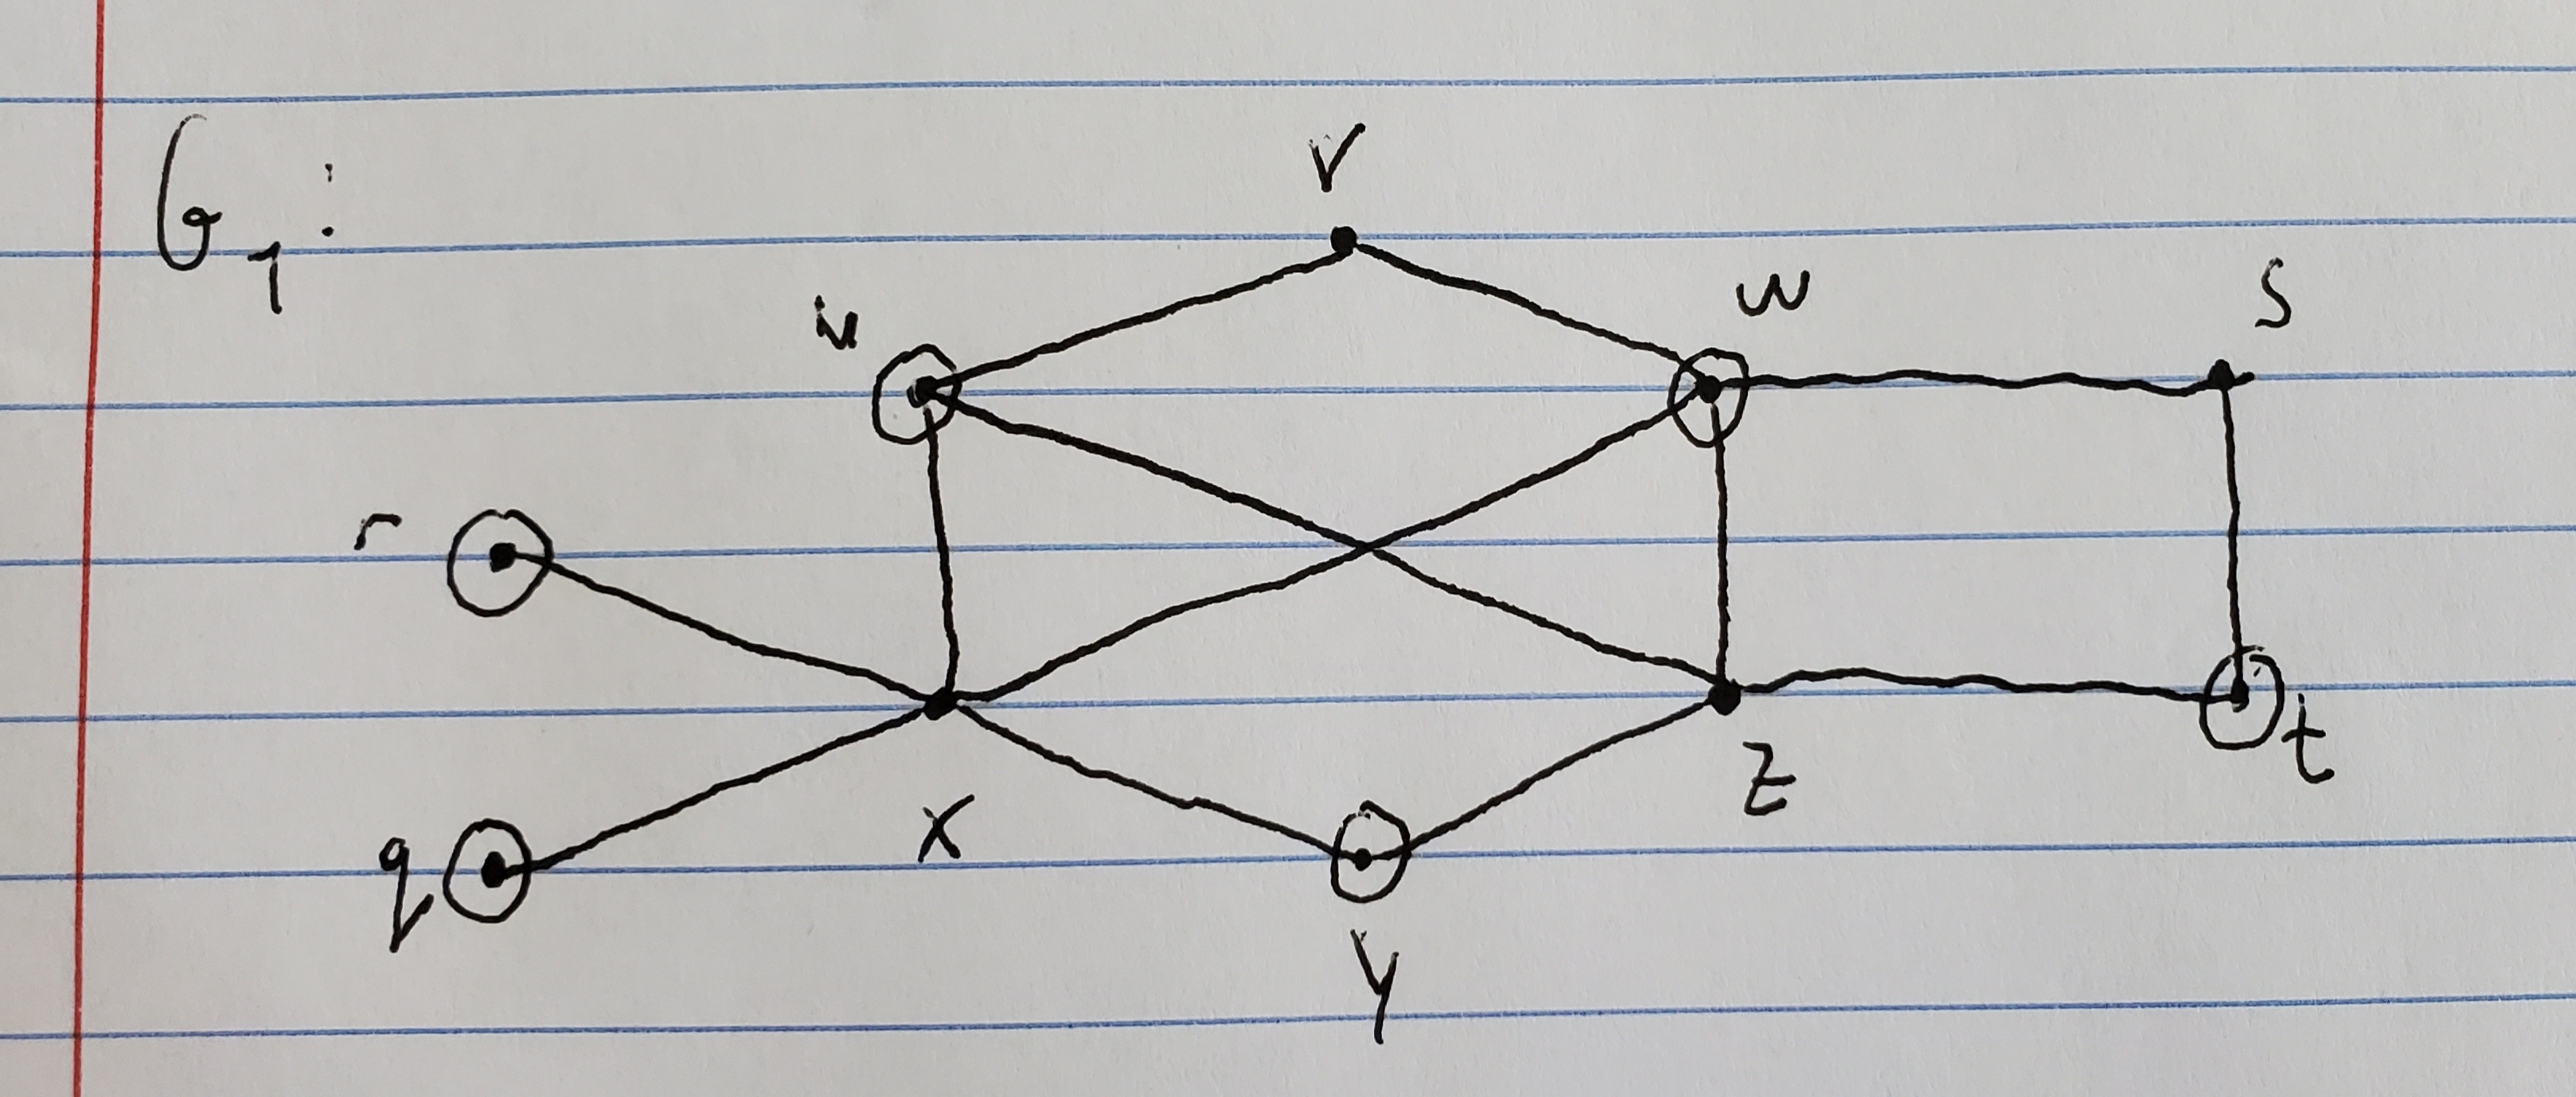 G₁:
v
u
w
s
r
q
x
z
t
y